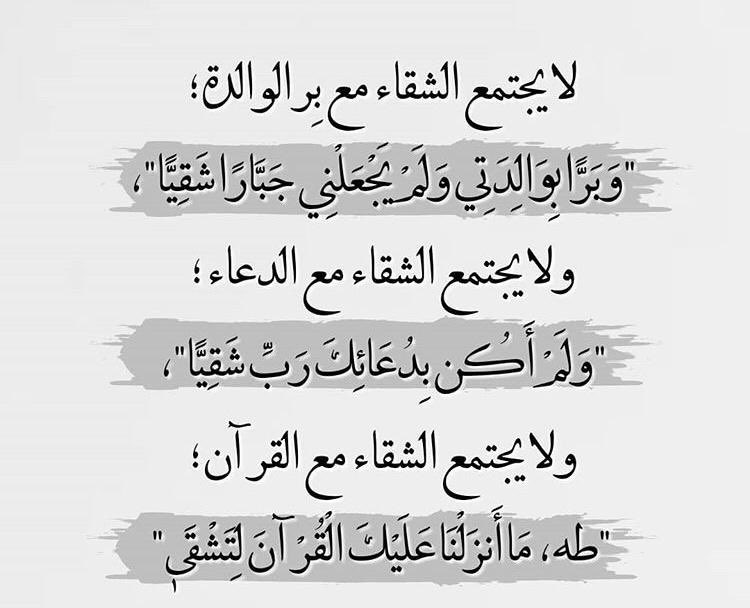 لا يجتمع الشقاء مع بِر الوالدة؛
"وَبَرًّا بِوَالِدَتِي وَلَمْ يَجْعَلْنِي جَبَّارًا شَقِيًّا"،
ولا يجتمع الشقاء مع الدعاء؛
"وَلَمْ أَكُن بِدُعَائِكَ رَبِّ شَقِيًّا"،
ولا يجتمع الشقاء مع القرآن؛
"طه، مَا أَنزَلْنَا عَلَيْكَ الْقُرْآنَ لِتَشْقَىٰ"